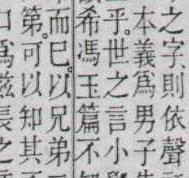 之字則依聲
本義爲男子
乎世之言小
希馮玉篇不
而已以兄弟
第可以知其
爲茲長之